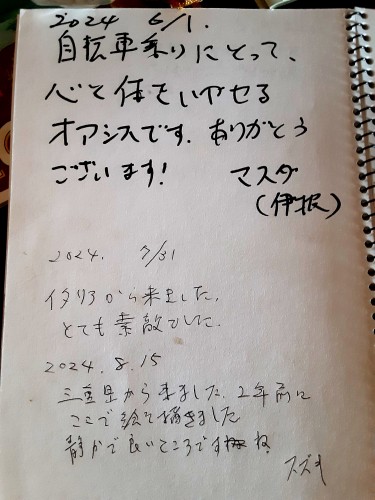 2024 6/1.
自転車乗りにとって、
心と体をいやせる
オアシスです. ありがとう
ございます! マスダ
(伊根)
2024. 7/31
イタリアから来ました.
とても素敵でした.
2024.8.15
三重県から来ました. 2年前に
ここで絵を描きました
静かで良いところですね.
スズキ